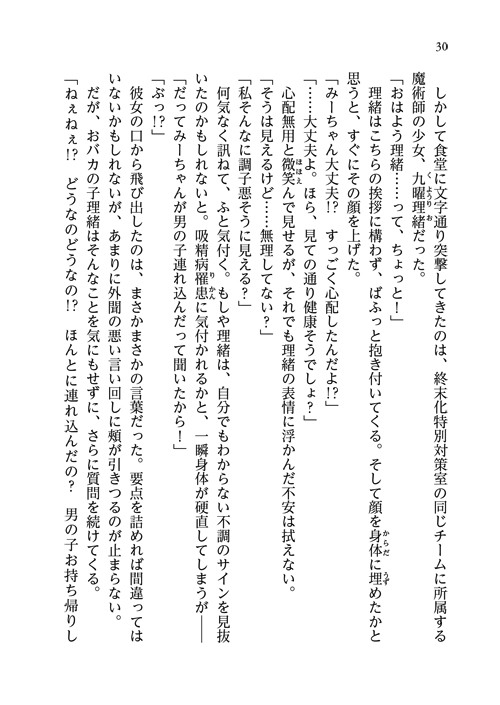 30
しかして食堂に文字通り突撃してきたのは、終末化特別対策室の同じチームに所属する
魔術師の少女、九曜理緒だった。
「おはよう理緒……って、ちょっと！」
理緒はこちらの挨拶に構わず、ばふっと抱き付いてくる。そして顔を身体に埋めたかと
思うと、すぐにその顔を上げた。
「みーちゃん大丈夫!?　すっごく心配したんだよ!?」
「……大丈夫よ。ほら、見ての通り健康そうでしょ？」
心配無用と微笑んで見せるが、それでも理緒の表情に浮かんだ不安は拭えない。
「そうは見えるけど……無理してない？」
「私そんなに調子悪そうに見える？」
何気なく訊ねて、ふと気付く。もしや理緒は、自分でもわからない不調のサインを見抜
いたのかもしれないと。吸精病罹患に気付かれるかと、一瞬身体が硬直してしまうが――
「だってみーちゃんが男の子連れ込んだって聞いたから！」
「ぶっ!?」
彼女の口から飛び出したのは、まさかまさかの言葉だった。要点を詰めれば間違っては
いないかもしれないが、あまりに外聞の悪い言い回しに頬が引きつるのが止まらない。
だが、おバカの子理緒はそんなことを気にもせずに、さらに質問を続けてくる。
「ねぇねぇ!?　どうなのどうなの!?　ほんとに連れ込んだの？　男の子お持ち帰りし